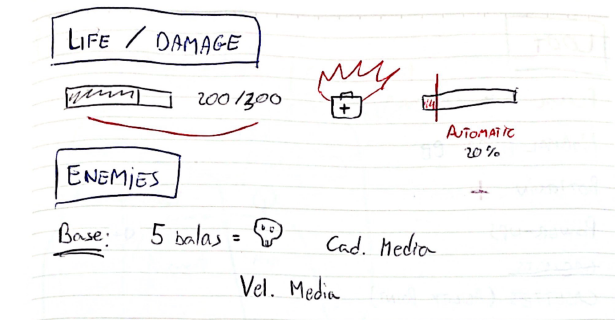 LIFE / DAMAGE
200/300
AUTOMATIC
20%
ENEMIES
Base: 5 balas = Cad. Media
Vel. Media